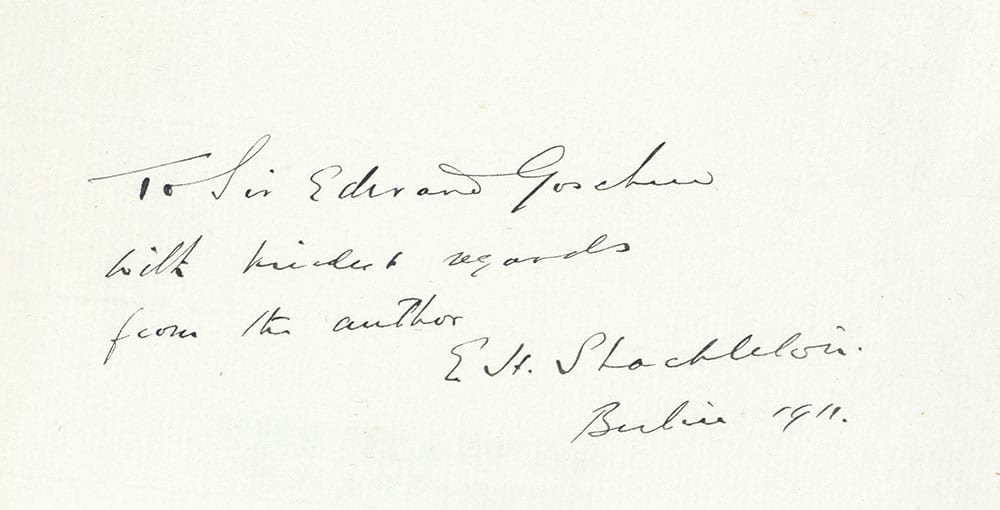 To Sir Edward Goschen
with kindest regards
from the author
E H. Shackleton.
Berlin 1911.